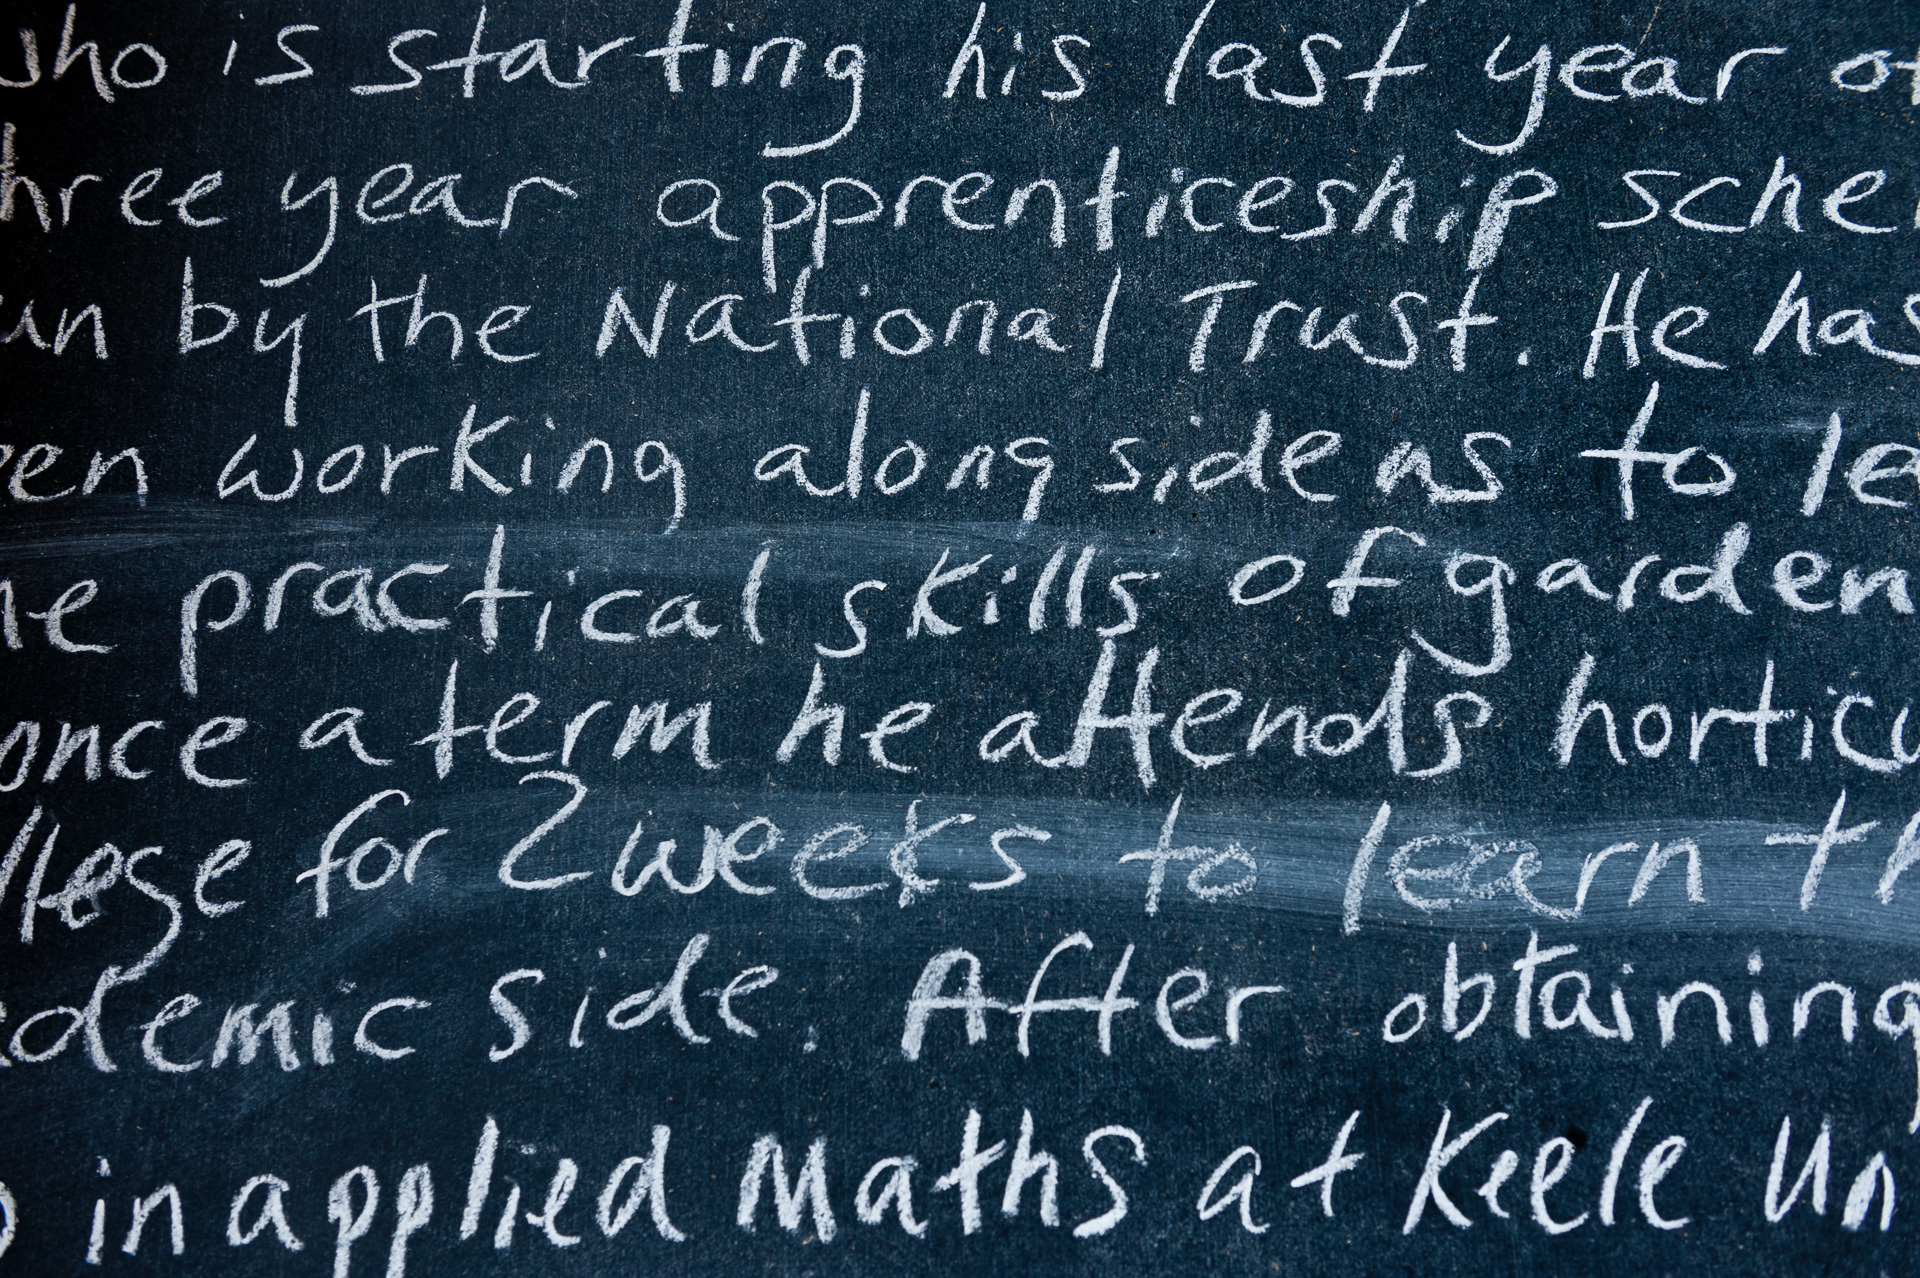 who is starting his last year of
three year apprenticeship sche
un by the National Trust. He has
een working along side us to le
he practical skills of garden
once a term he attends horticu
llege for 2 weeks to learn th
ademic side. After obtaining
in applied Maths at Keele Un